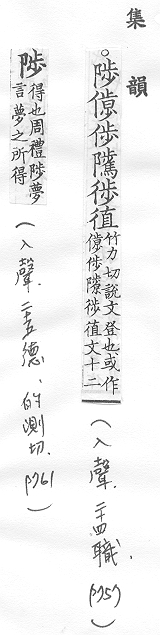 集韻
。陟偫㣥騭徏徝竹力切說文登也或作
偫㣥騭徏徝文十二
(入聲.二十四職.P757)
陟得也周禮陟夢
言夢之所得
(入聲.二十五德、的測切.P761)